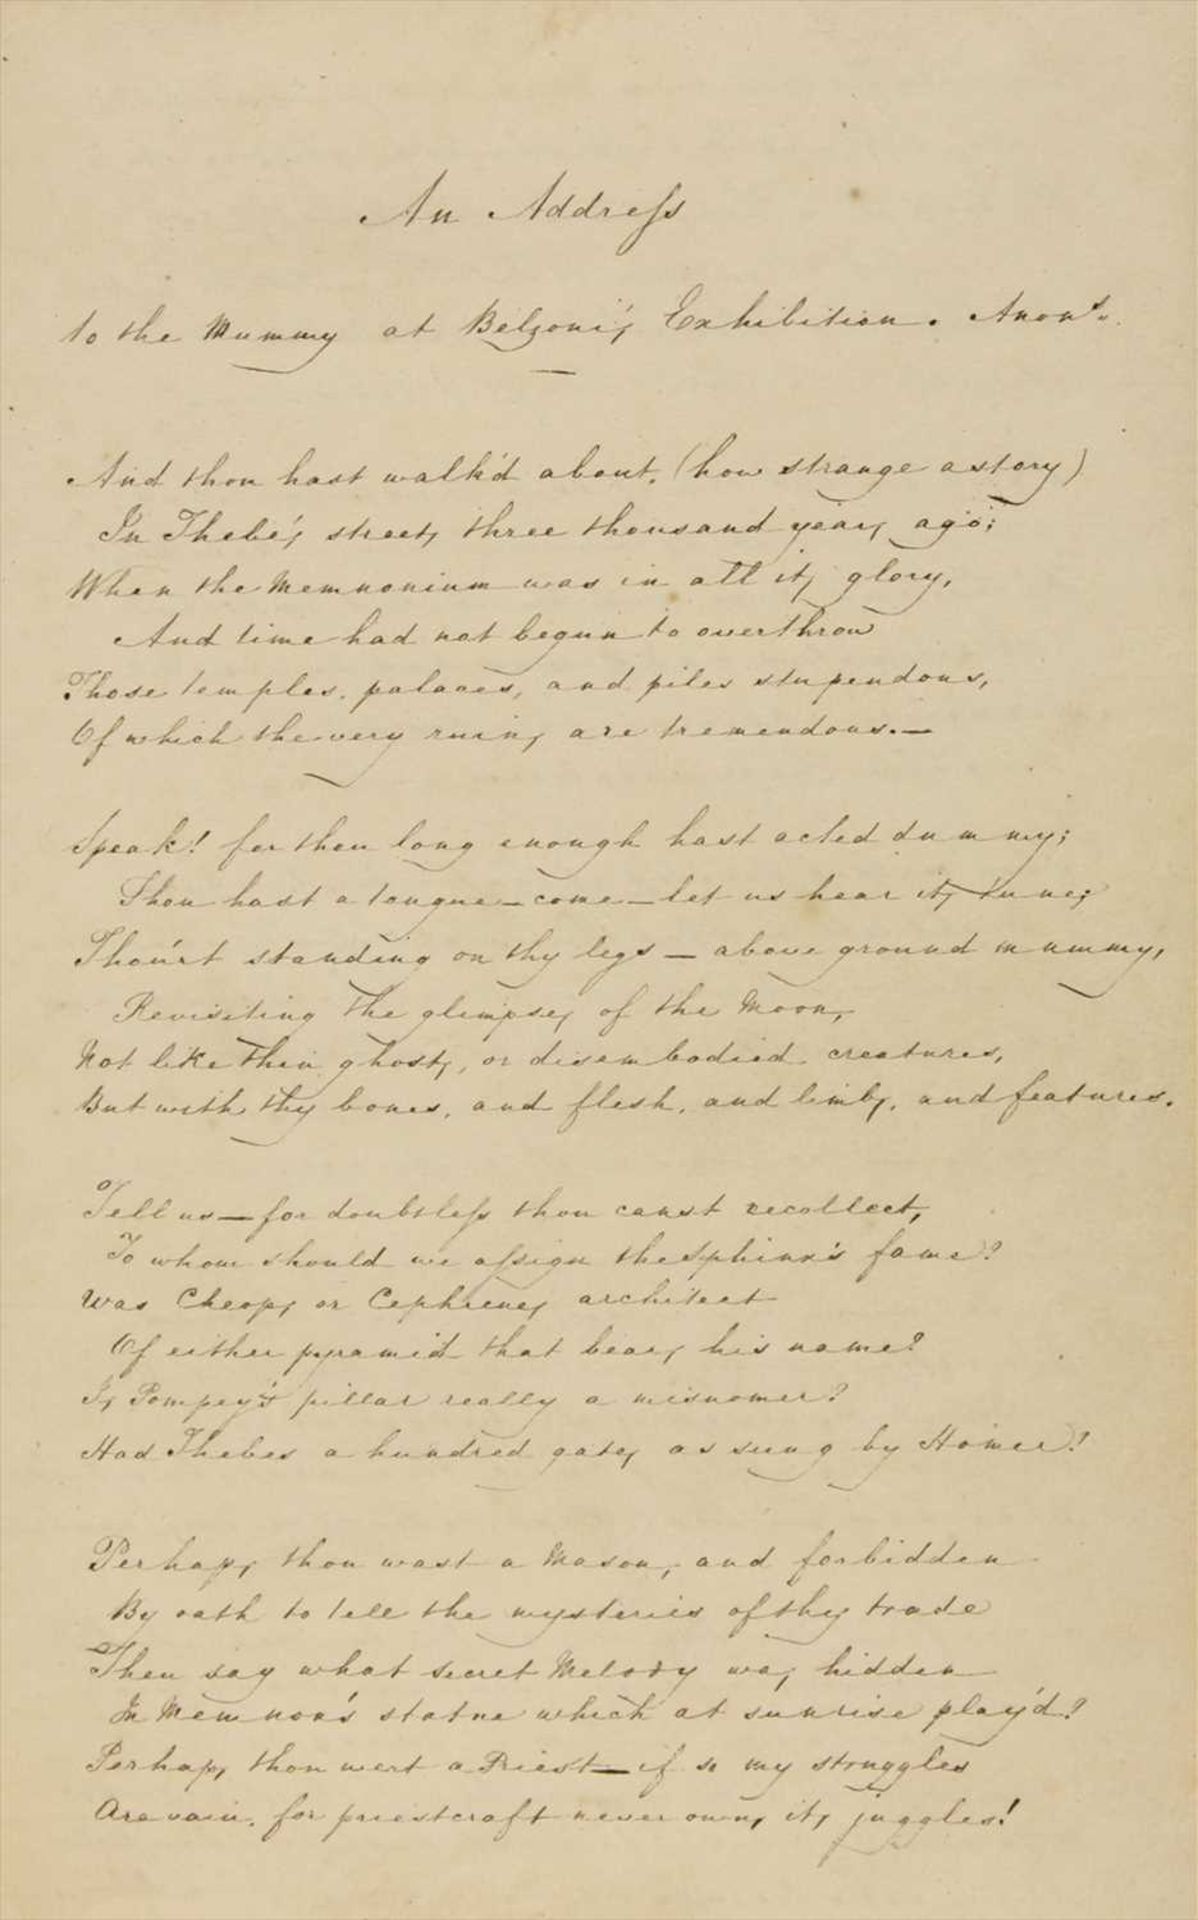 An Address
to the Mummy at Belzoni's Exhibition. Anons.
And thou hast walk'd about, (how strange a story)
In Thebe's streets three thousand years ago;
When the Memnonium was in all its glory,
And time had not begun to overthrow
Those temples, palaces, and piles stupendous,
Of which the very ruins are tremendous.—
Speak! for thou long enough hast acted dummy;
Thou hast a tongue—come—let us hear its tune;
Thou'rt standing on thy legs — above ground mummy,
Revisiting the glimpses of the Moon,
Not like thin ghosts, or disembodied creatures,
But with thy bones, and flesh, and limbs, and features.
Tell us—for doubtless thou canst recollect,
To whom should we assign the Sphinx's fame?
Was Cheops or Cephrenes architect
Of either pyramid that bears his name?
Is Pompey's pillar really a misnomer?
Had Thebes a hundred gates as sung by Homer?
Perhaps thou wast a Mason, and forbidden
By oath to tell the mysteries of thy trade
Then say what secret Melody was hidden
In Memnon's statue which at sunrise play'd?
Perhaps thou wert a Priest—if so my struggles
Are vain, for priestcraft never owns its juggles!